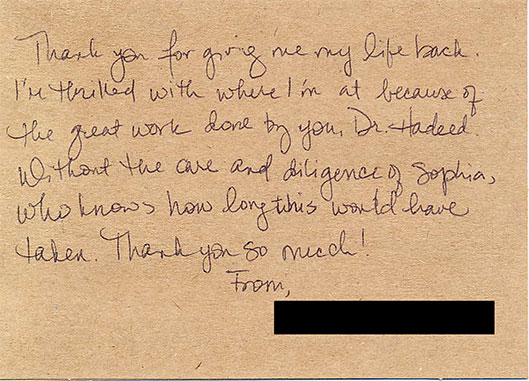 Thank you for giving me my life back.
I'm thrilled with where I'm at because of
the great work done by you, Dr. Hadeed.
Without the care and diligence of Sophia,
who knows how long this would have
taken. Thank you so much!
From,